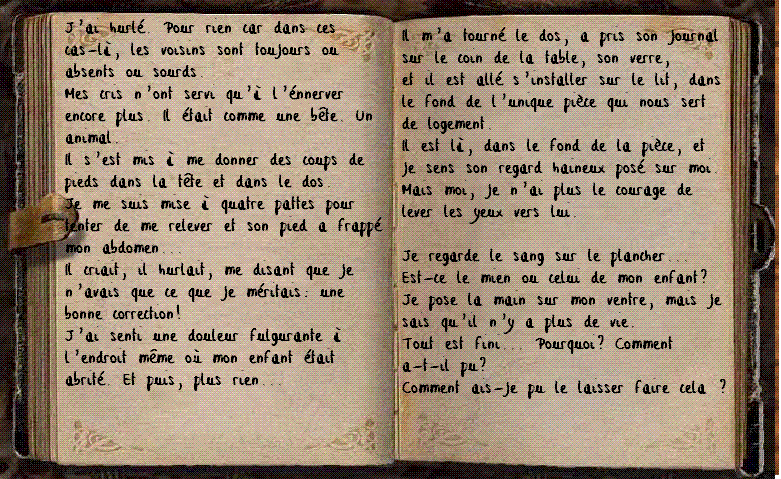 J'ai hurlé. Pour rien car dans ces
cas-là, les voisins sont toujours ou
absents ou sourds.
Mes cris n'ont servi qu'à l'énnerver
encore plus. Il était comme une bête. Un
animal.
Il s'est mis à me donner des coups de
pieds dans la tête et dans le dos.
Je me suis mise à quatre pattes pour
tenter de me relever et son pied a frappé
mon abdomen...
Il criait, il hurlait, me disant que je
n'avais que ce que je méritais: une
bonne correction!
J'ai senti une douleur fulgurante à
l'endroit même où mon enfant était
abrité. Et puis, plus rien...
Il m'a tourné le dos, a pris son journal
sur le coin de la table, son verre,
et il est allé s'installer sur le lit, dans
le fond de l'unique pièce qui nous sert
de logement.
Il est là, dans le fond de la pièce, et
je sens son regard haineux posé sur moi.
Mais moi, je n'ai plus le courage de
lever les yeux vers lui.
Je regarde le sang sur le plancher...
Est-ce le mien ou celui de mon enfant?
Je pose la main sur mon ventre, mais je
sais qu'il n'y a plus de vie.
Tout est fini... Pourquoi? Comment
a-t-il pu?
Comment ais-je pu le laisser faire cela ?